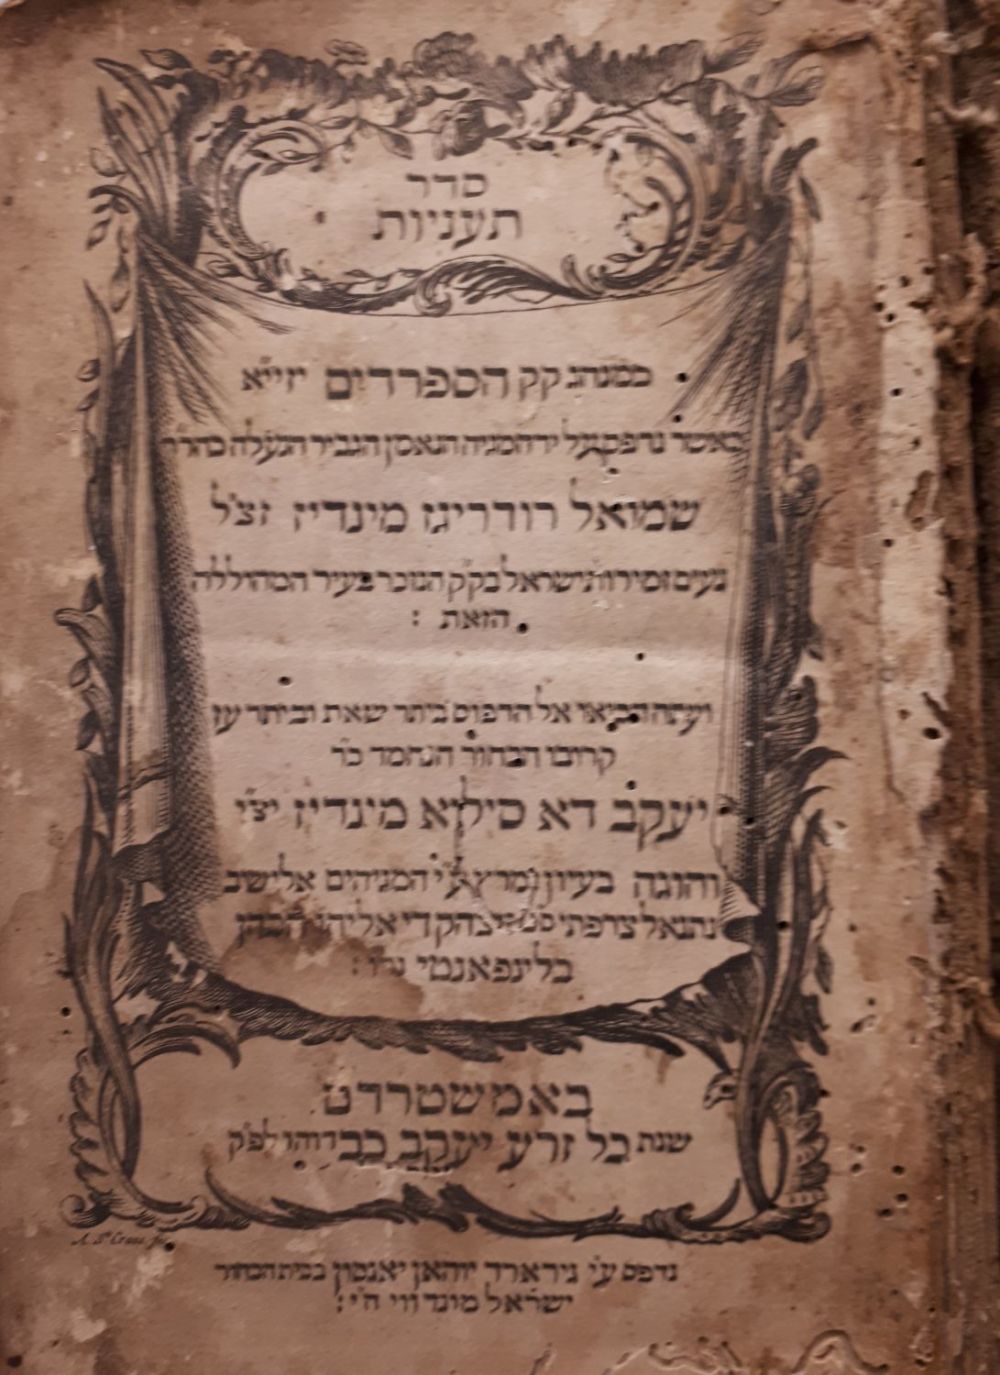 סדר
תעניות
כמנהג קק הספרדים יזייא
כאשר נדפס על יד המגיה הנאמן הגביר הנעלה כהר״ר
שמואל רודריגו מינדיז זצ״ל
נעים זמירות ישראל בק״ק הנזכר בעיר המהוללה
הזאת :
ועתה הביאו אל הדפוס ביתר שאת וביתר עז
קרובו הבחור הנחמד כ״ר
יעקב דא סילוא מינדיז יצ״ו
והוגה בעיון נמרץ ע״י המגיהים אלישיב
נתנאל צרפתי יצחק די אליהו הכהן
בלינפאנטי
באמשטרדם
שנת כל זרע יעקב כבדוהו לפ״ק
A. S.
נדפס ע״י גירארד יוהאן יאנסון בבית
ישראל מונדווי הי״ו :